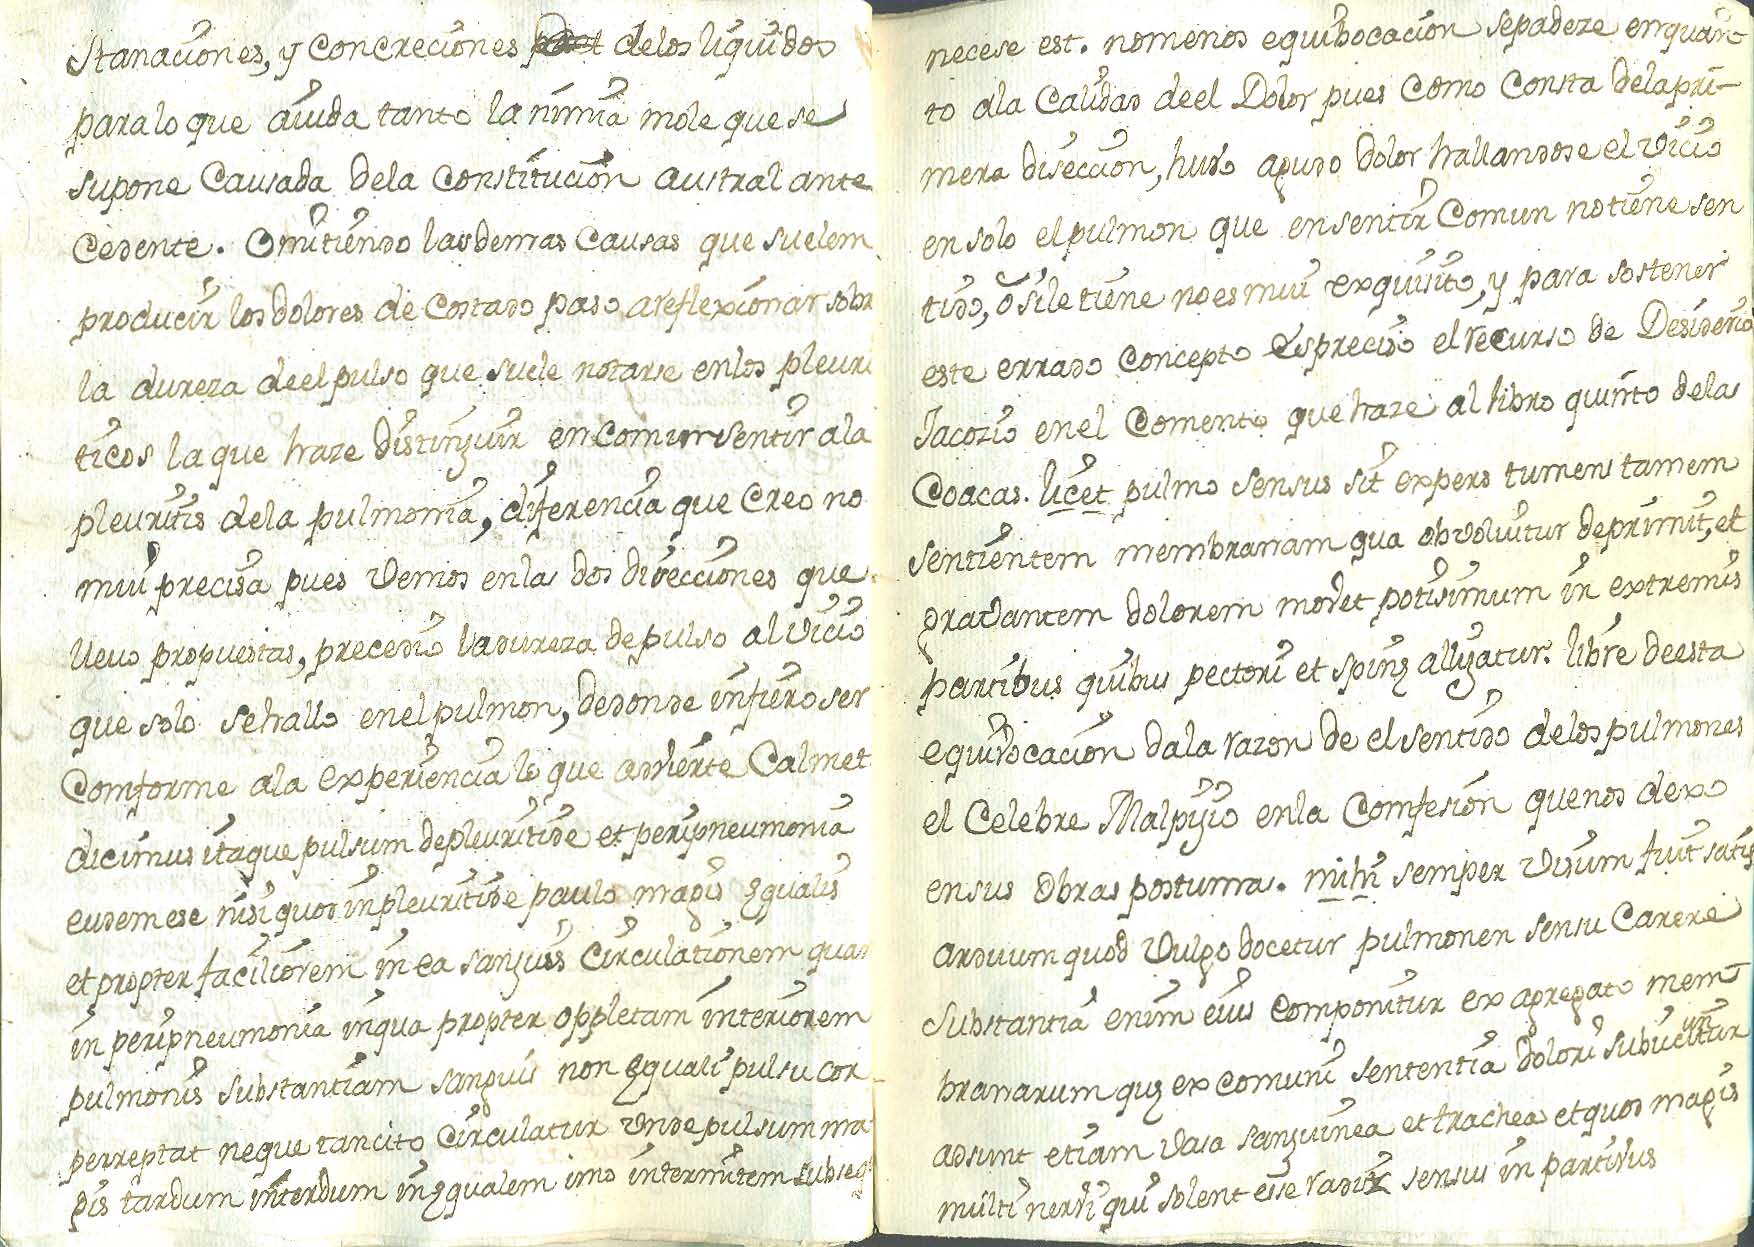 stanaciones, y concreciones delos liquidos
para lo que aiuda tanto la nimia mole que se
supone Causada dela Constitucion austral ante
Cedente. Omitiendo las demas Causas que suelem
producir los dolores de Costado paso a reflexionar sobr
la dureza de el pulso que suele notarse en los pleuri
ticos la que haze distinguir en comun sentir a la
pleuritis dela pulmonia, diferencia que Creo no
mui precisa pues vemos en las dos disecciones que
llevo propuestas, precedio la dureza de pulso al vicio
que solo se hallo en el pulmon, de donde infiero ser
Comforme ala experiencia lo que advierte Calmet
dicimus itaque pulsum de pleuritide et peripneumonia
eudem ese nisi quod in pleuritide paulo magis ęqualis
et propter faciliorem in ea sanguis Circulationem quam
in peripneumonia in qua propter oppletam interiorem
pulmonis substantiam sanguis non ęquali pulsu cor
perreptat neque tan cito Circulatur unde pulsum ma
gis tardum interdum inęqualem imo intermitem subseq
necese est. no menos equibocacion se padeze en quan
to ala Calidad de el Dolor pues Como Consta dela pri-
mera diseccion, hubo agudo dolor hallandose el vicio
en solo el pulmon que en sentir Comun no tiene sen
tido, ó si le tiene no es mui exquisito, y para sostener
este errado Concepto es preciso el recurso de Desiderio
Jacozio en el Comento que haze al libro quinto de las
Coacas. licet pulmo sensus sit expers tumens tamem
sentientem membranam qua obvolvitur deprimit, et
gravantem dolorem movet potisimum in extremis
partibus quibus pectori et spinę alligatur. libre de esta
equivocacion da la razon de el sentido delos pulmones
el Celebre Malpijio en la Comfesion que nos dexo
en sus obras postumas. mihi semper visum fuit satis
arduum quod vulgo docetur pulmonen sensu Carere
substantia enim eius Componitur ex agregato mem
branarum quę ex comuni sententia dolori subiiciuntur
adsunt etiam vasa sanguinea et trachea et quod magis
multi nervi qui solent esse radix sensus in partibus